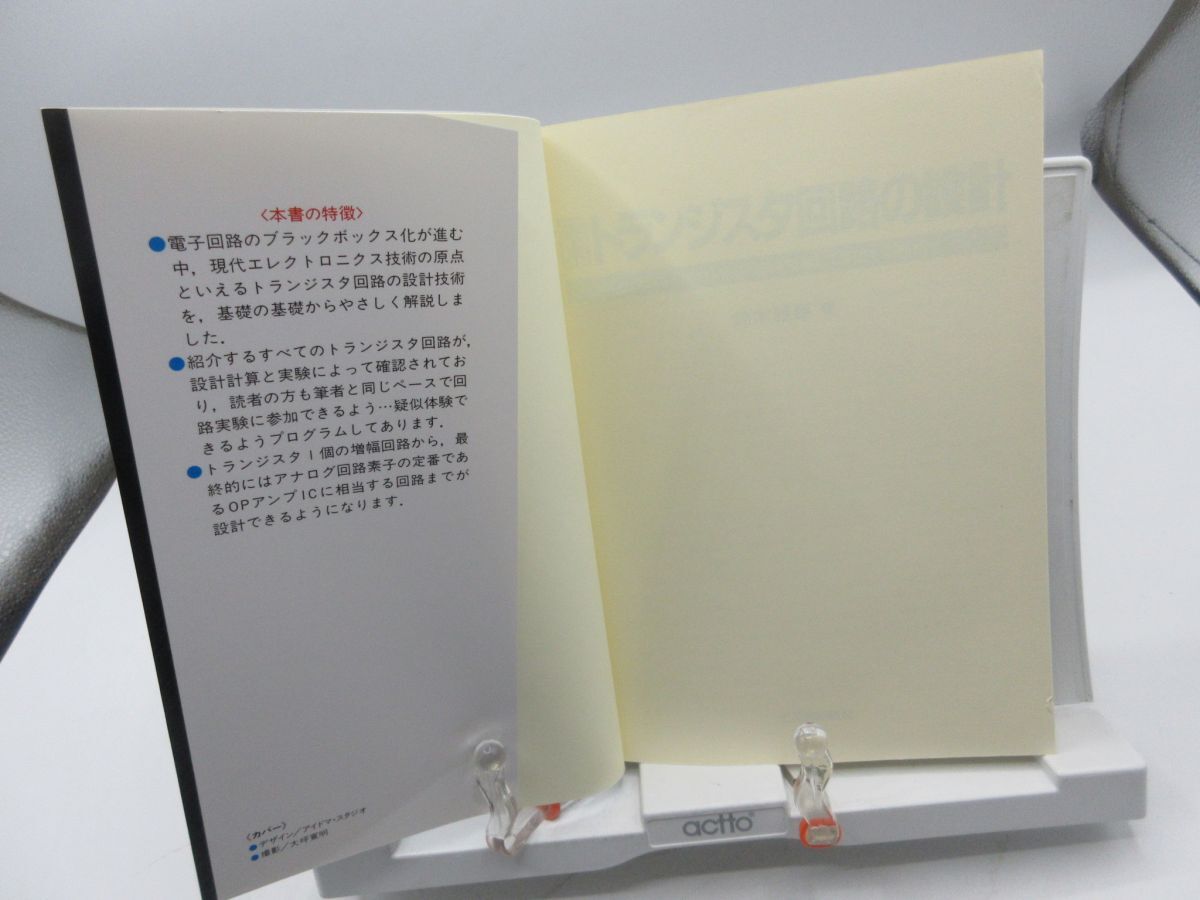 〈本書の特徴〉
●電子回路のブラックボックス化が進む
中，現代エレクトロニクス技術の原点
といえるトランジスタ回路の設計技術
を，基礎の基礎からやさしく解説しま
した．
●紹介するすべてのトランジスタ回路が，
設計計算と実験によって確認されてお
り，読者の方も筆者と同じペースで回
路実験に参加できるよう…疑似体験で
きるようプログラムしてあります．
●トランジスタ1個の増幅回路から，最
終的にはアナログ回路素子の定番であ
るOPアンプICに相当する回路までが
設計できるようになります．
〈カバー〉
●デザイン／アイドマ・スタジオ
●撮影／大坪寛明
トランジスタ回路の設計
actto